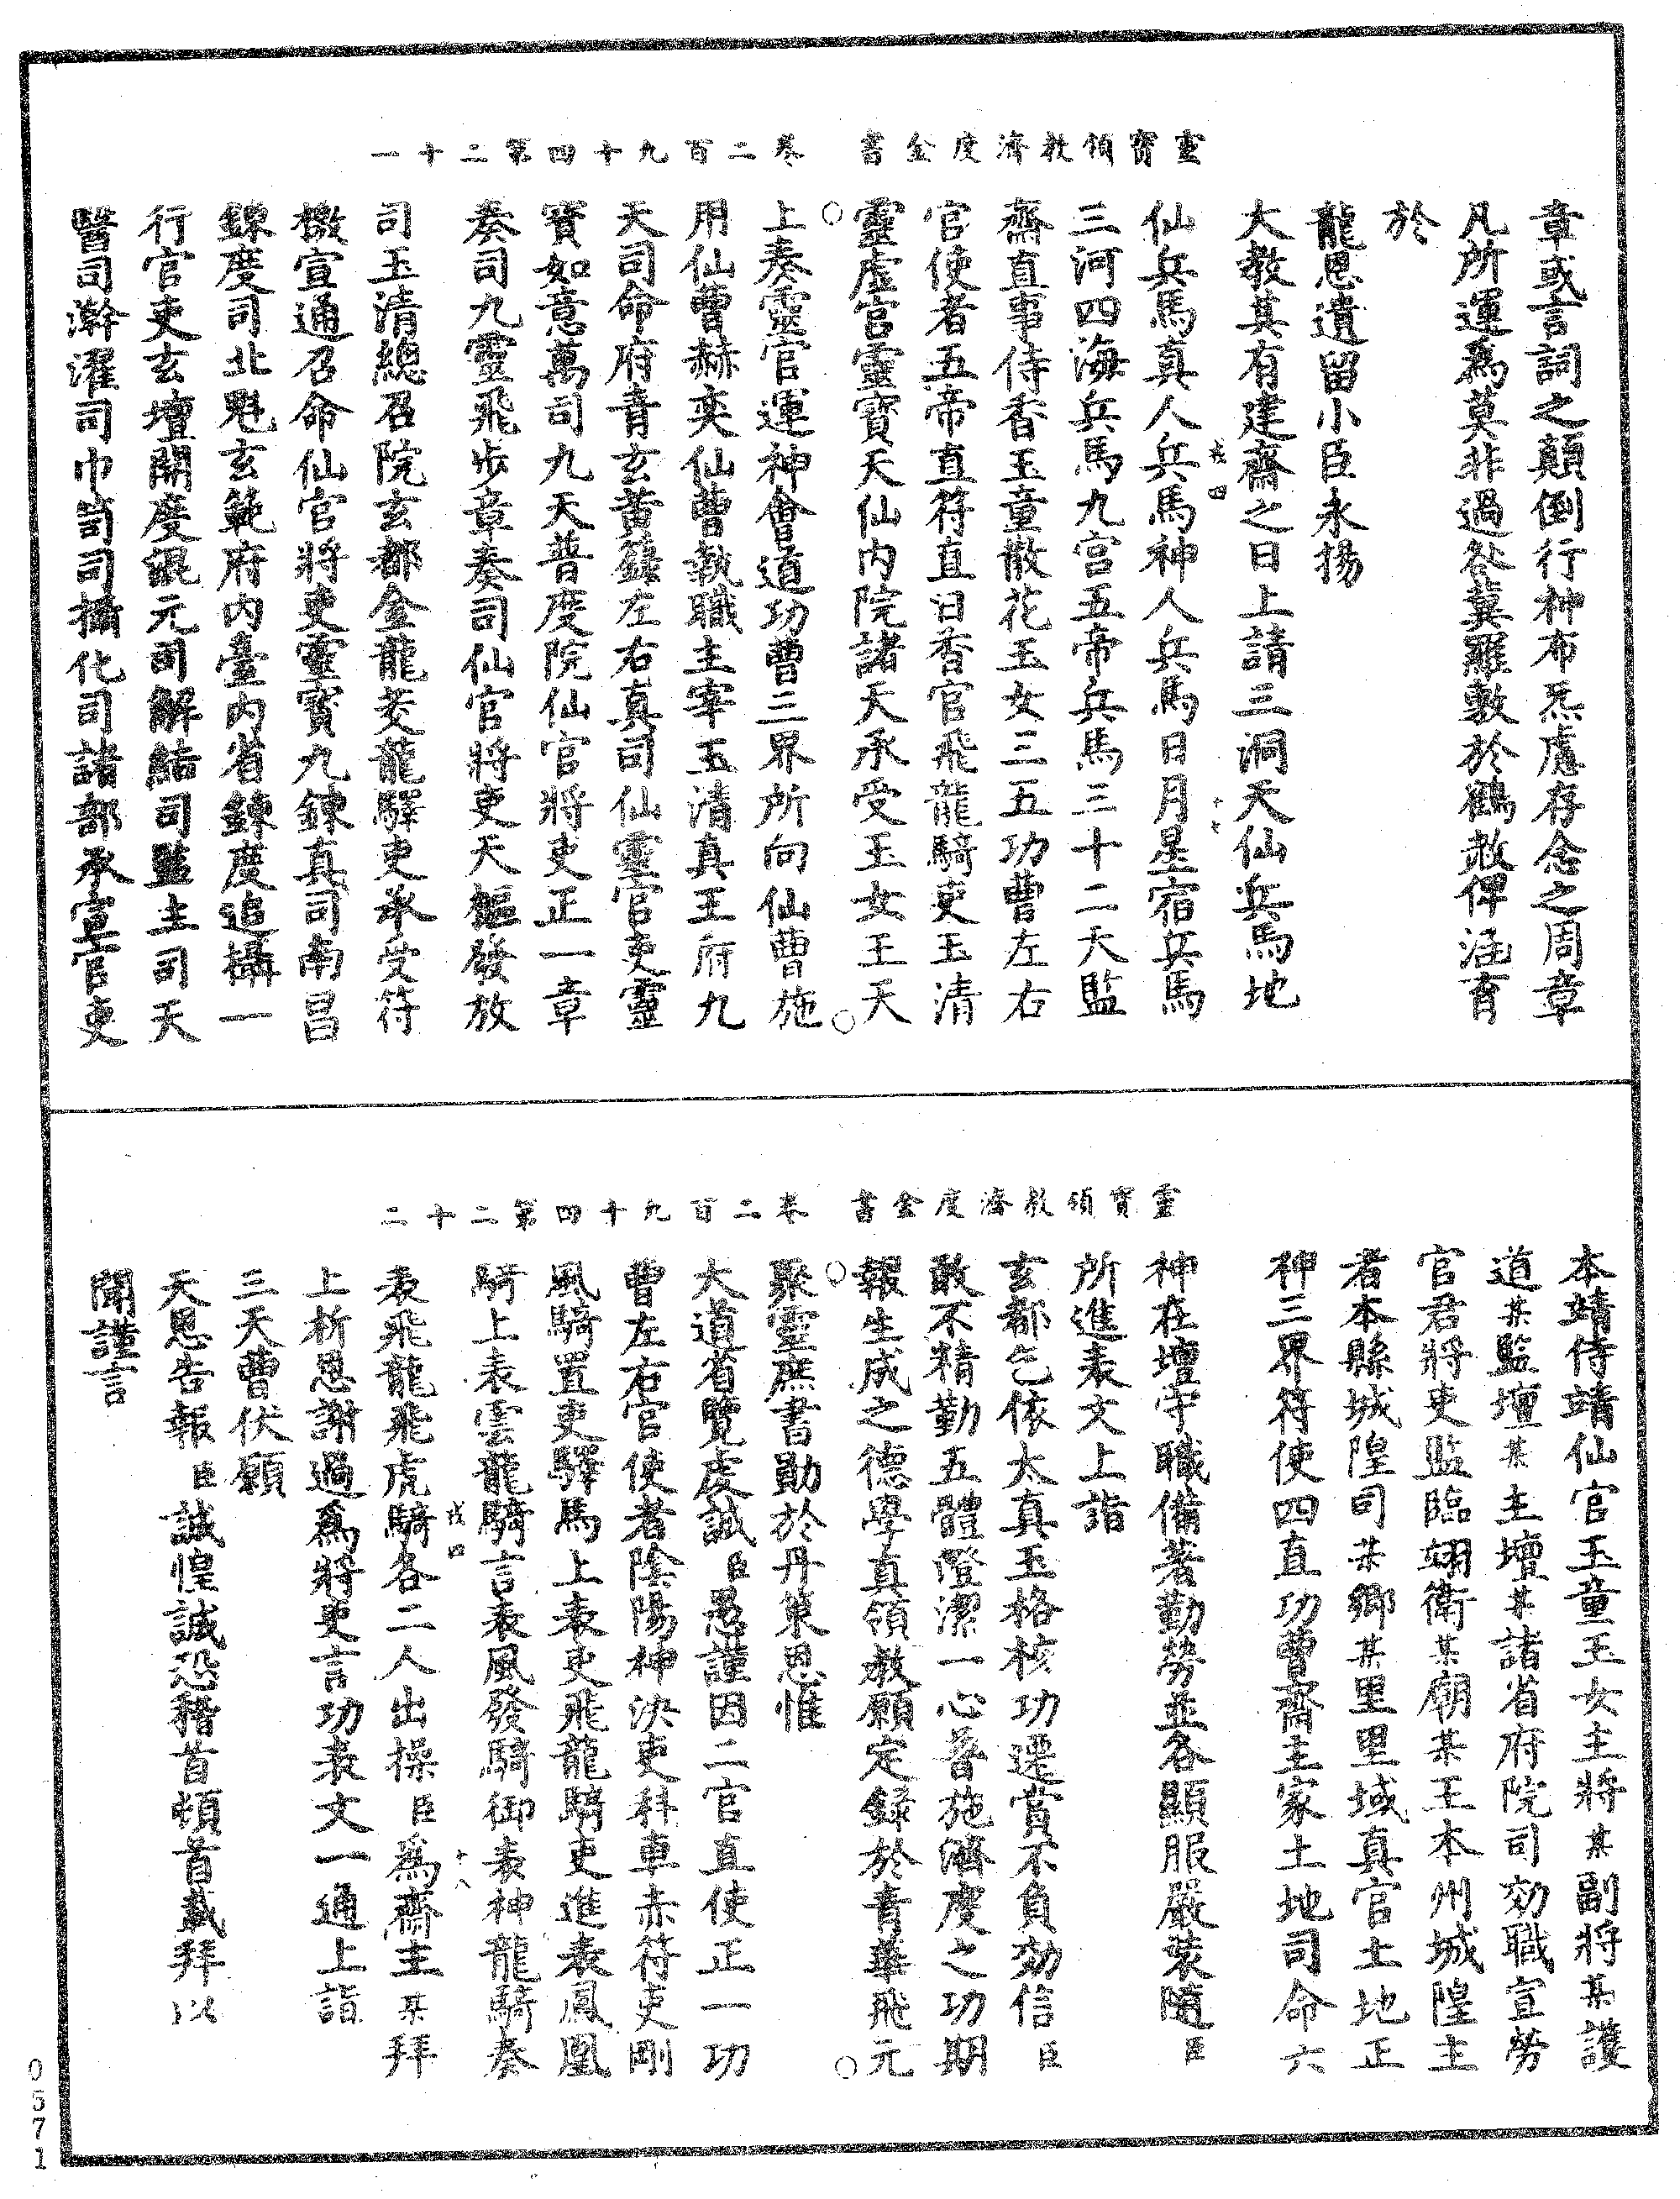 靈寶領教濟度金書　卷二百九十四第二十一
章或言詞之顛倒行神布炁慮存念之周章
凡所運為莫非過咎冀羅敷於鶴赦俾涵育
於
龍恩遺留小臣永揚
大教其有建齋之日上請三洞天仙兵馬地
仙兵馬真人兵馬神人兵馬日月星宿兵馬
三河四海兵馬九宮五帝兵馬三十二天監
齋直事侍香玉童散花玉女三五功曹左右
官使者五帝直符直日香官飛龍騎吏玉清
靈虛宮靈寶天仙內院諸天承受玉女王天
上奏靈官運神會道功曹三界所向仙曹施
用仙曹赫奕仙曹執職主宰玉清真王府九
天司命府青玄黃籙左右真司仙靈官吏靈
寶如意萬司九天普度院仙官將吏正一章
奏司九靈飛步章奏司仙官將吏天樞發放
司玉清總召院玄都金龍茭龍驛吏承受符
檄宣通召命仙官將吏靈寶九鍊真司南昌
鍊度司北魁玄範府內臺內省鍊度追攝一
行官吏玄壇開度混元司解結司監主司天
醫司澣濯司巾司司攝化司諸部承宣官吏
靈寶領教濟度金書　卷二百九十四第二十二
本靖侍靖仙官玉童玉女主將某副將某護
道某監壇某主壇某諸省府院司効職宣勞
官君將吏監臨翊衛某廟某王本州城隍主
者本縣城隍司某鄉某里里域真官土地正
神三界符使四直功曹齋主家土地司命六
神在壇守職備著勤勞並各顯服嚴裝隨臣
所進表文上詣
玄都乞依太真玉格核功遷賞不負効信臣
敢不精勤五體澄潔一心普施濟度之功期
報生成之德學真領教願定錄於青華飛元
聚靈庶書勛於丹策恩惟
大道省覽虔誠臣愚謹因二官直使正一功
曹左右官使者陰陽神決吏科車赤符吏剛
風騎置吏驛馬上表吏飛龍騎吏進表鳳凰
騎上表雲龍騎言表風發騎御表神龍騎奏
表飛龍飛虎騎各二人出操臣為齋主某拜
上析恩謝過為將吏言功表文一通上詣
三天曹伏願
天恩告報臣誠惶誠恐稽首頓首載拜以
聞謹言
0571